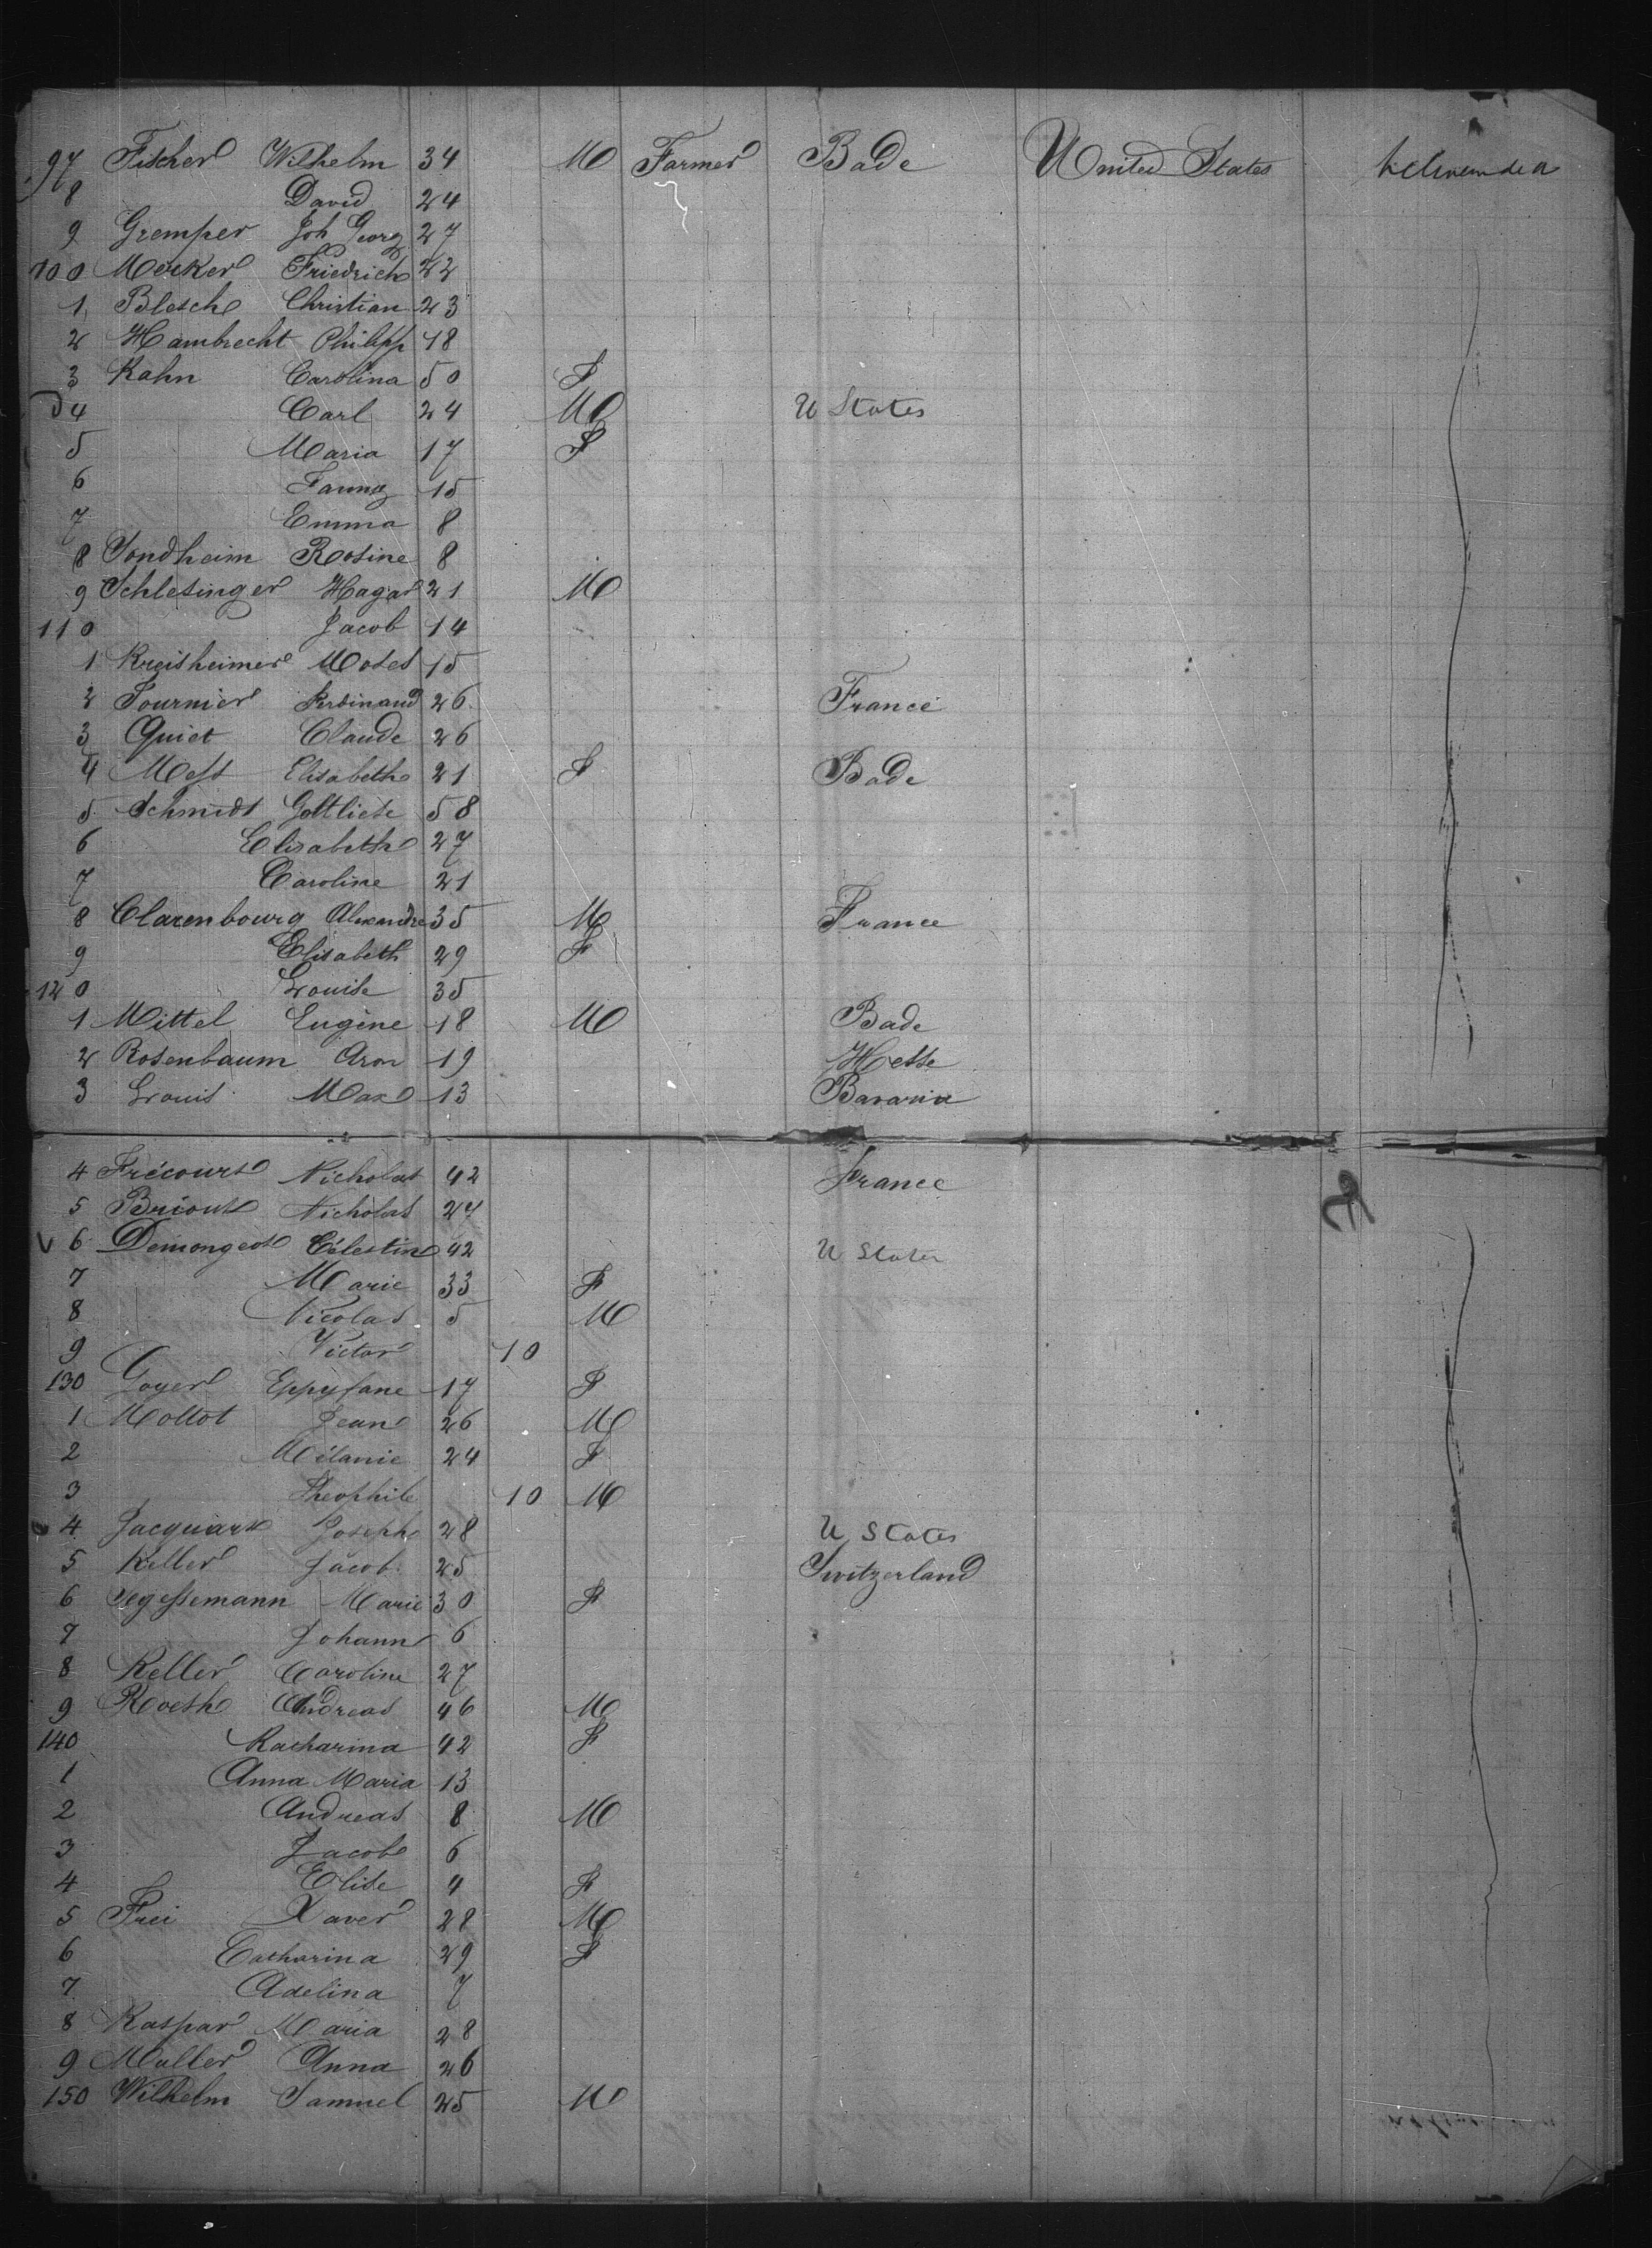 97 Fischer Wilhelm 34 M Farmer Bade United States
8 David 24
9 Gremper Joh Georg 27
100 Merker Friedrich 22
1 Blesch Christian 23
2 Hambrecht Philipp 18
3 Kahn Carolina 50 F
4 Carl 24 M U States
5 Maria 17 F
6 Fanny 15
7 Emma 8
8 Sondheim Rosine 8
9 Schlesinger Hagar 21 M
110 Jacob 14
1 Kreisheimer Moses 15
2 Fournier Ferdinand 26 France
3 Quiet Claude 26
4 Mess Elisabeth 21 F Bade
5 Schmidt Gottliebe 58
6 Elisabeth 27
7 Caroline 21
8 Clarenbourg Alexandre 35 M France
9 Elisabeth 29 F
120 Louise 35
1 Mittel Eugène 18 M Bade
2 Rosenbaum Aron 19 Hesse
3 Louis Max 13 Bavaria
4 Frécourt Nicholas 42 France
5 Briout Nicholas 27
6 Demongeot Célestin 42 U States
7 Marie 33 F
8 Nicolas 5 M
9 Victor 10
130 Goyer Eppyfane 17 F
1 Mottot Jean 26 M
2 Mélanie 24 F
3 Theophile 10 M
4 Jacquart Joseph 28 U States
5 Keller Jacob 25 Switzerland
6 Segessemann Marie 30 F
7 Johann 6
8 Keller Caroline 27
9 Roesh Andreas 46 M
140 Katharina 42 F
1 Anna Maria 13
2 Andreas 8 M
3 Jacob 6
4 Elise 4 F
5 Frei Xaver 28 M
6 Catharina 29 F
7 Adelina 7
8 Kaspar Maria 28
9 Muller Anna 26
150 Wilhelm Samuel 25 M